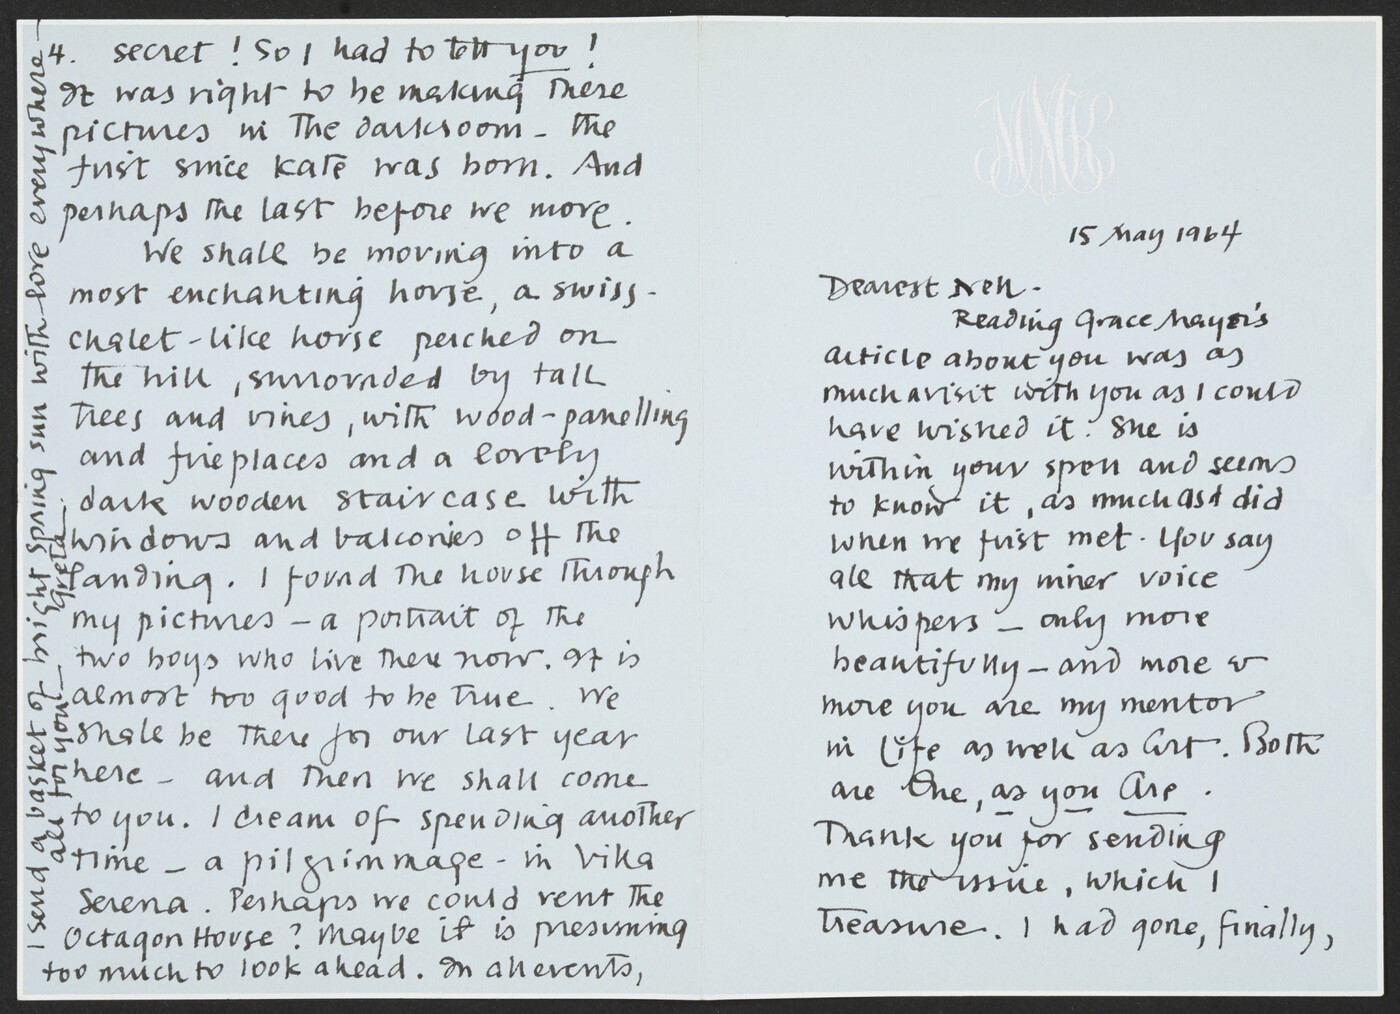 MMK
15 May 1964
Dearest Nell -
Reading Grace Mayer's
article about you was as
much a visit with you as I could
have wished it. She is
within your spell and seems
to know it, as much as I did
when we first met. You say
all that my inner voice
whispers - only more
beautifully - and more &
more you are my mentor
in Life as well as Art. Both
are One, as you Are.
Thank you for sending
me the issue, which I
treasure. I had gone, finally,
4. secret! So I had to tell you!
It was right to be making there
pictures in the darkroom - the
first since Kate was born. And
perhaps the last before we move.
We shall be moving into a
most enchanting house, a swiss-
chalet-like house perched on
the hill, surrounded by tall
trees and vines, with wood-panelling
and fireplaces and a lovely
dark wooden staircase with
windows and balconies off the
landing. I found the house through
my pictures - a portrait of the
two boys who live there now. It is
almost too good to be true. We
shall be there for our last year
here - and then we shall come
to you. I dream of spending another
time - a pilgrimmage - in Villa
Serena. Perhaps we could rent the
Octagon House? Maybe it is presuming
too much to look ahead. In all events,
I send a basket of bright Spring sun with love everywhere -
all for you - Greta